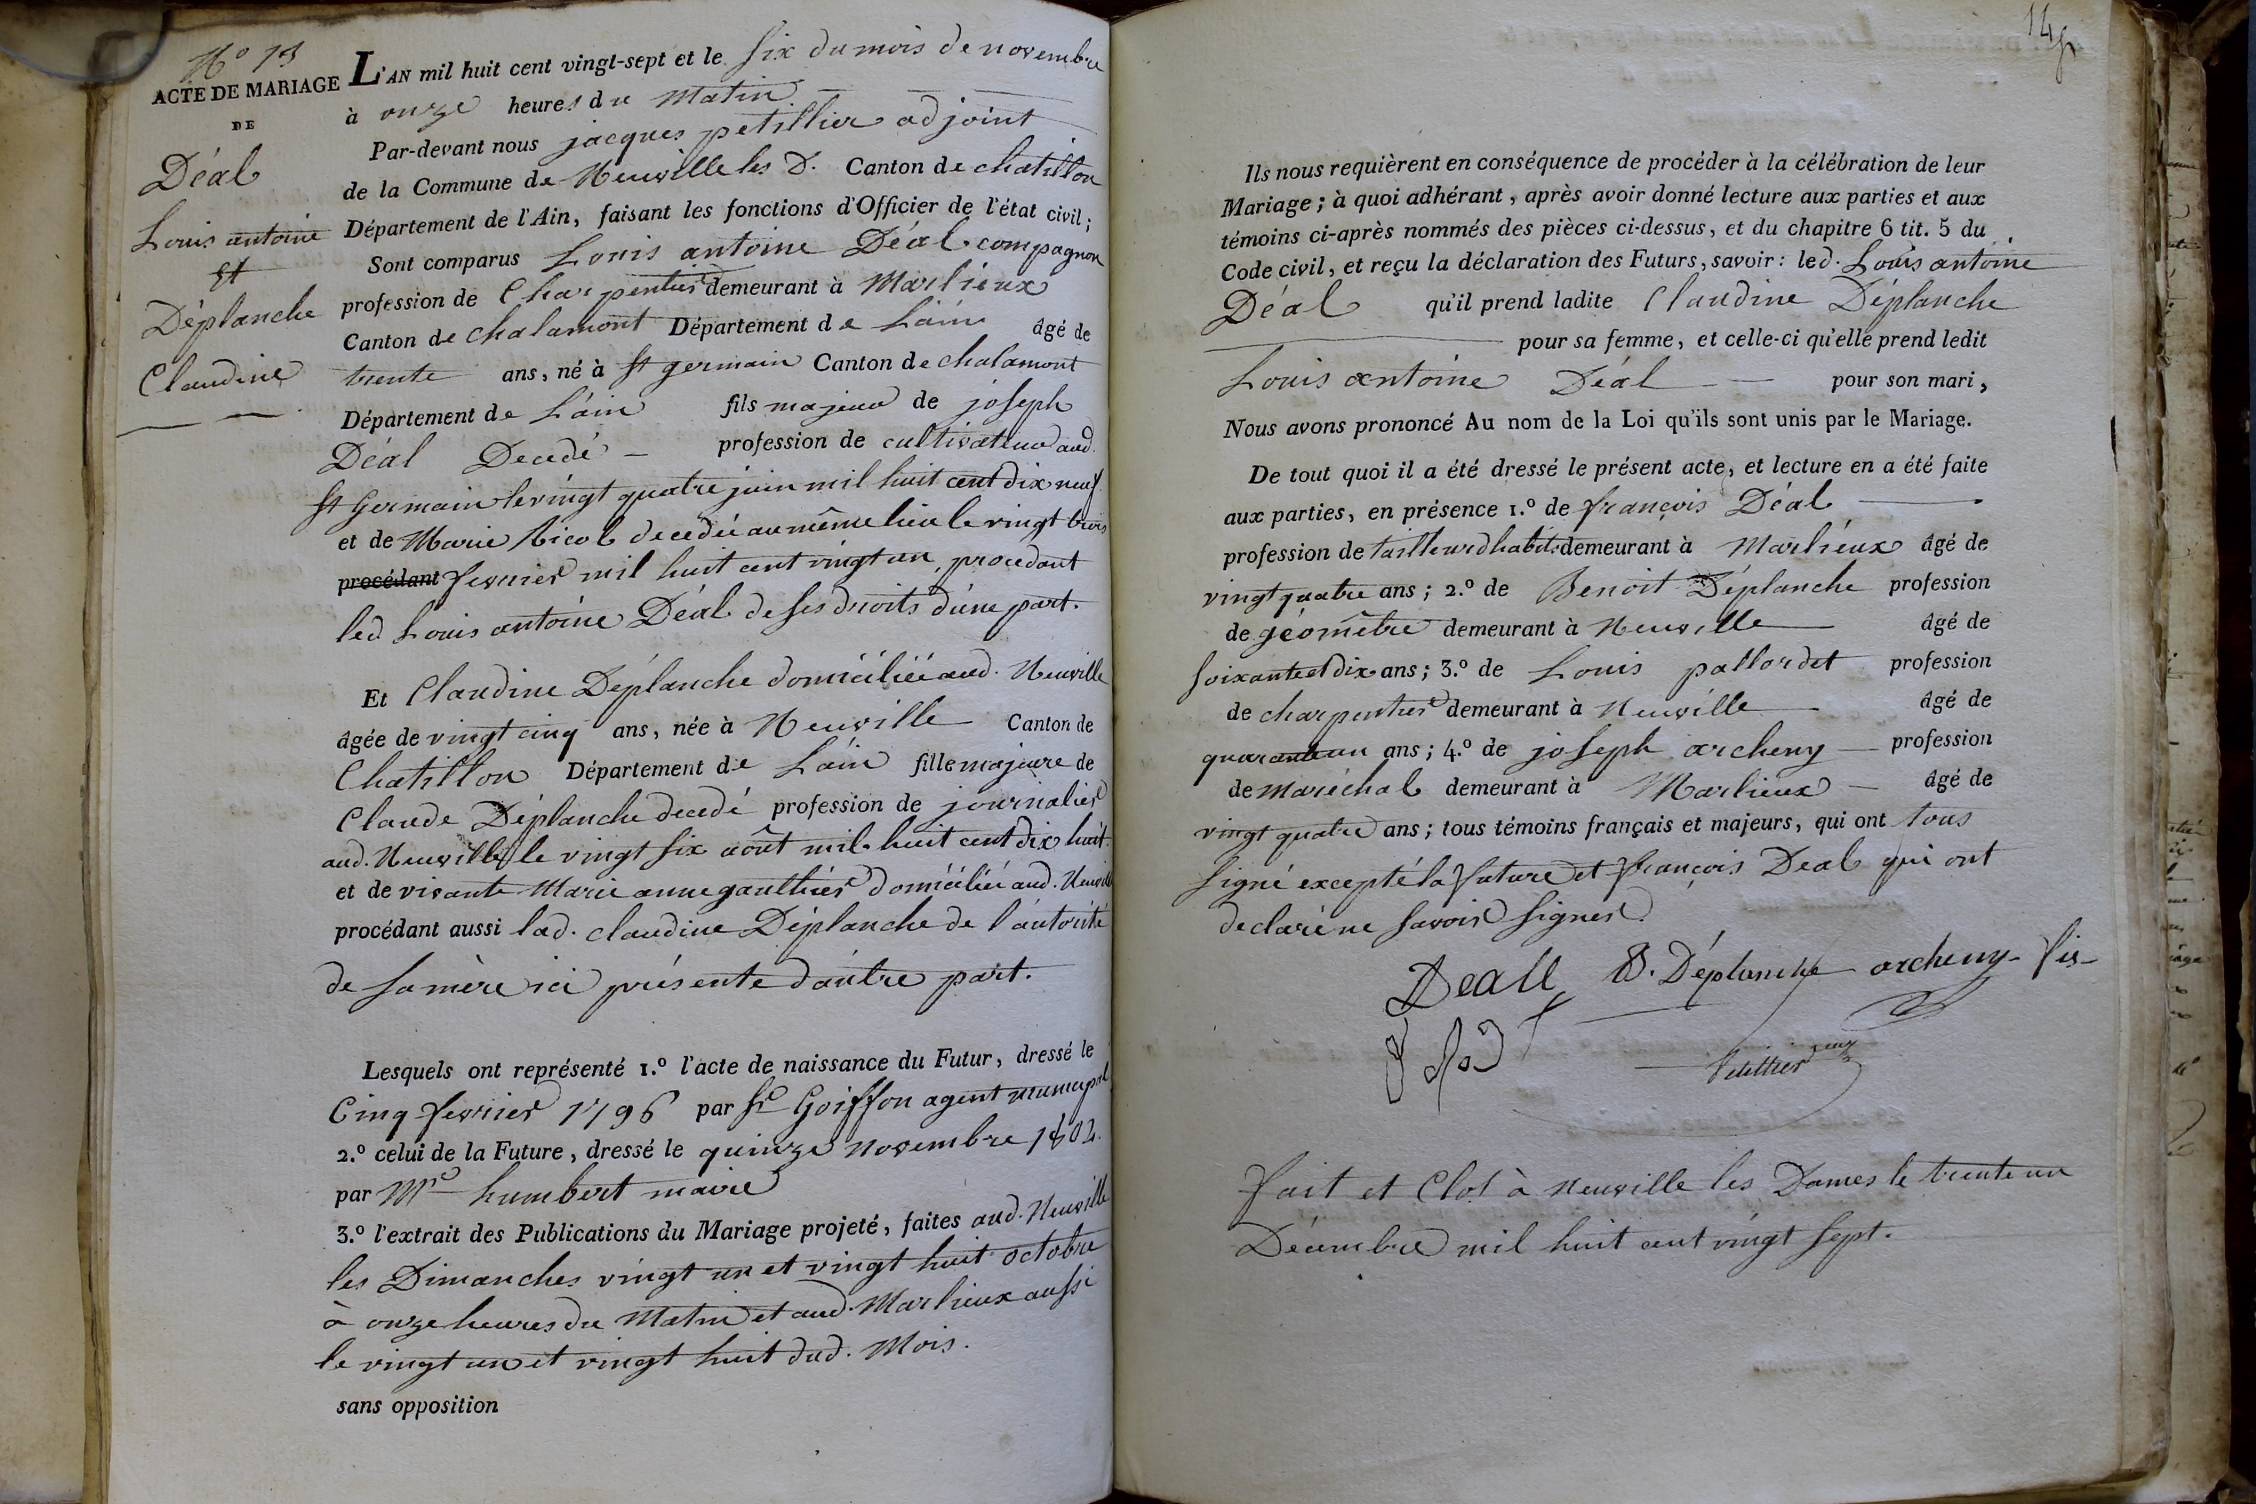 N° 13
ACTE DE MARIAGE
DE
Déal
Louis antoine
Et
Déplanche
Claudine
L'AN mil huit cent vingt-sept et le six du mois de novembre
à onze heures du Matin
Par-devant nous jacques petillier adjoint
de la Commune de Neuville les D. Canton de chatillon
Département de l'Ain, faisant les fonctions d'Officier de l'état civil ;
Sont comparus Louis antoine Déal compagnon
profession de Charpentier demeurant à Marlieux
Canton de chalamont Département de L'ain âgé de
trente ans, né à St germain Canton de chalamont
Département de L'ain fils majeur de joseph
Déal Decedé profession de cultivateur aud.
St Germain le vingt quatre juin mil huit cent dix neuf
et de Marie Nicol decedée au même lieu le vingt trois
procédant fevrier mil huit cent vingt un, procedant
led Louis antoine Déal de ses droits d'une part.
Et Claudine Déplanche domiciliée aud. Neuville
âgée de vingt cinq ans, née à Neuville Canton de
Chatillon Département de L'ain fille majeure de
Claude Déplanche decedé profession de journalier
aud. Neuville le vingt six août mil huit cent dix huit
et de vivante Marie anne gaulthier domiciliée aud. Neuville
procédant aussi lad. claudine Déplanche de l'autorité
de sa mère ici présente d'autre part.
Lesquels ont représenté 1.° l'acte de naissance du Futur, dressé le
Cinq fevrier 1796 par Sr Goiffon agent municipal
2.° celui de la Future, dressé le quinze Novembre 1802.
par Mr humbert maire
3.° l'extrait des Publications du Mariage projeté, faites aud. Neuville
les Dimanches vingt un et vingt huit octobre
à onze heures du Matin et aud. Marlieux aussi
le vingt un et vingt huit dud. Mois.
sans opposition
Ils nous requièrent en conséquence de procéder à la célébration de leur
Mariage ; à quoi adhérant, après avoir donné lecture aux parties et aux
témoins ci-après nommés des pièces ci-dessus, et du chapitre 6 tit. 5 du
Code civil, et reçu la déclaration des Futurs, savoir : led. Louis antoine
Déal qu'il prend ladite Claudine Déplanche
pour sa femme, et celle-ci qu'elle prend ledit
Louis antoine Déal pour son mari,
Nous avons prononcé Au nom de la Loi qu'ils sont unis par le Mariage.
De tout quoi il a été dressé le présent acte, et lecture en a été faite
aux parties, en présence 1.° de françois Déal
profession de tailleur d'habits demeurant à Marlieux âgé de
vingt quatre ans ; 2.° de Benoit Déplanche profession
de géomêtre demeurant à Neuville âgé de
soixante et dix ans ; 3.° de Louis pallordet profession
de charpentier demeurant à Neuville âgé de
quarante un ans ; 4.° de joseph archeny profession
de maréchal demeurant à Marlieux âgé de
vingt quatre ans ; tous témoins français et majeurs, qui ont tous
signé excepté la future et françois Deal qui ont
declaré ne savoir signer.
Deall B. Déplanche archeny fis
Petillier
fait et Clos à Neuville les Dames le trente un
Décembre mil huit cent vingt sept.